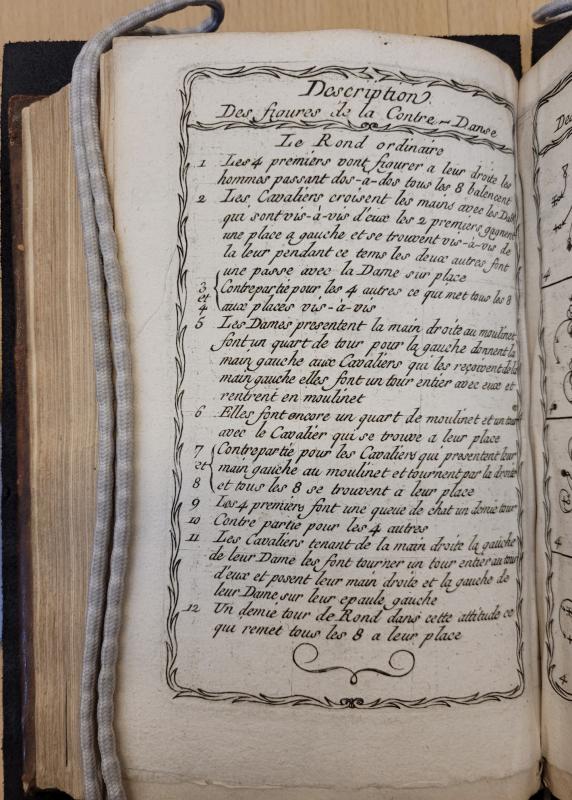 Description
Des figures de la Contre-Danse
Le Rond ordinaire
1 Les 4 premiers vont figurer a leur droite les
hommes passant dos-à-dos tous les 8 balencent
2 Les Cavaliers croisent les mains avec les
qui sont vis-à-vis d'eux les 2 premiers gagnent
une place a gauche et se trouvent vis-à-vis de
la leur pendant ce tems les deux autres font
une passe avec la Dame sur place
3 et 4 Contrepartie pour les 4 autres ce qui met tous les 8
aux places vis-à-vis
5 Les Dames presentent la main droite au moulinet
font un quart de tour pour la gauche donnent la
main gauche aux Cavaliers qui les reçoivent de la
main gauche elles font un tour entier avec eux et
rentrent en moulinet
6 Elles font encore un quart de moulinet et un tour
avec le Cavalier qui se trouve a leur place
7 et 8 Contrepartie pour les Cavaliers qui presentent leur
main gauche au moulinet et tournent par la droite
et tous les 8 se trouvent à leur place
9 Les 4 premiers font une queue de chat un demie tour
10 Contre partie pour les 4 autres
11 Les Cavaliers tenant de la main droite la gauche
de leur Dame les font tourner un tour entier au tour
d'eux et posent leur main droite et la gauche de
leur Dame sur leur epaule gauche
12 Un demie tour de Rond dans cette attitude ce
qui remet tous les 8 a leur place